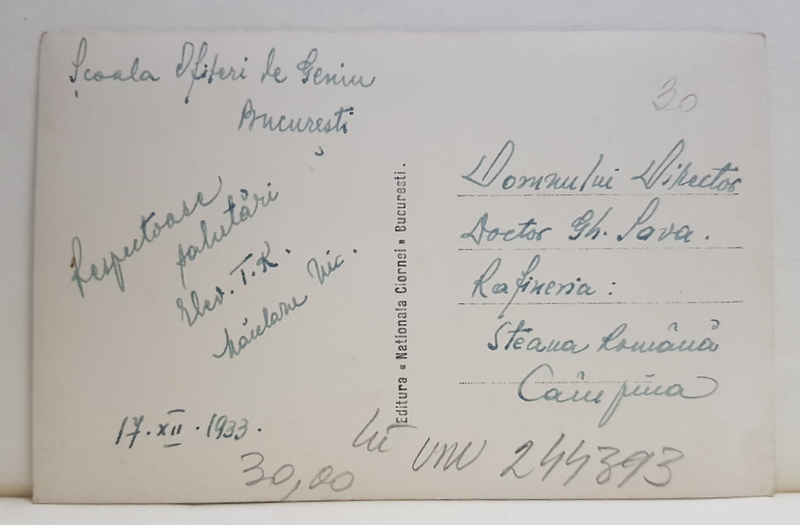 Școala Ofițeri de Geniu
București
Respectoase
salutări
Elev. T.R.
Nic.
17.XII.1933.
Editura « Nationala Ciornei » Bucuresti.
30
Domnului Director
Doctor Gh. Sava.
Rafineria:
Steaua Română
Câmpina
30,00 lei
244393